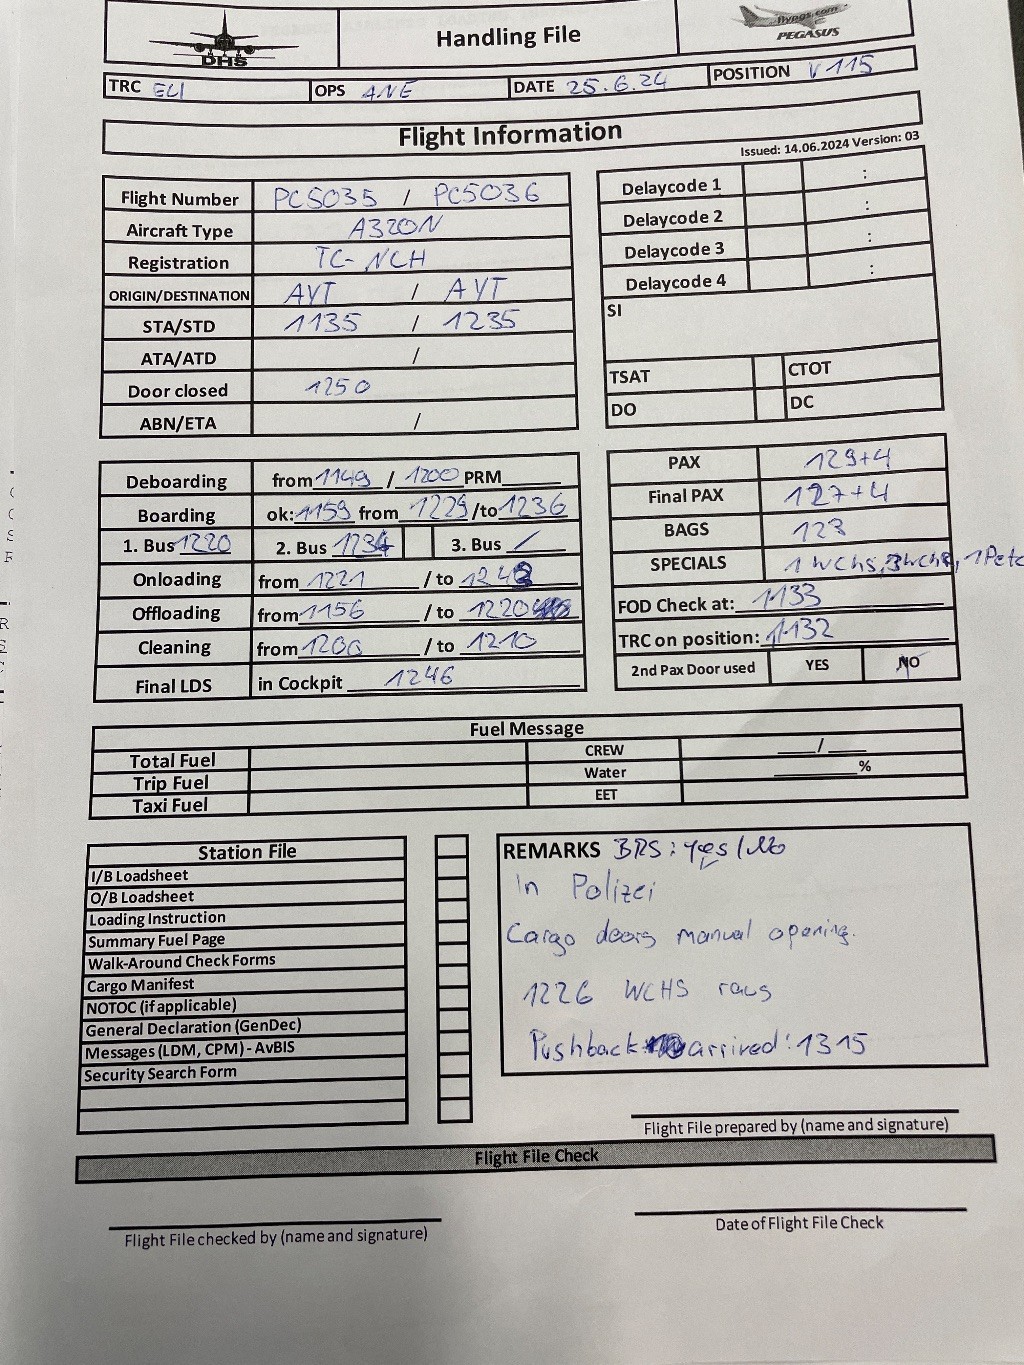 DHS
Handling File
flypgs.com
PEGASUS
TRC ELI OPS ANE DATE 25.6.24 POSITION V115
Flight Information
Issued: 14.06.2024 Version: 03
Flight Number PC5035 / PC5036
Aircraft Type A320N
Registration TC-NCH
ORIGIN/DESTINATION AYT / AYT
STA/STD 1135 / 1235
ATA/ATD /
Door closed 1250
ABN/ETA /
Delaycode 1 :
Delaycode 2 :
Delaycode 3 :
Delaycode 4 :
SI
TSAT CTOT
DO DC
Deboarding from 1149 / 1200 PRM
Boarding ok: 1159 from 1229 /to 1236
1. Bus 1220 2. Bus 1234 3. Bus /
Onloading from 1221 / to 1243
Offloading from 1156 / to 1220
Cleaning from 1200 / to 1210
Final LDS in Cockpit 1246
PAX 129+4
Final PAX 127+4
BAGS 123
SPECIALS 1 WCHS, 3WCHR, 1 Petc
FOD Check at: 1133
TRC on position: 1132
2nd Pax Door used YES NO
Fuel Message
Total Fuel CREW /
Trip Fuel Water %
Taxi Fuel EET
Station File
I/B Loadsheet
O/B Loadsheet
Loading Instruction
Summary Fuel Page
Walk-Around Check Forms
Cargo Manifest
NOTOC (if applicable)
General Declaration (GenDec)
Messages (LDM, CPM) - AvBIS
Security Search Form
REMARKS BRS: yes / No
In Polizei
Cargo doors manual opening.
1226 WCHS raus
Pushback arrived: 1315
Flight File prepared by (name and signature)
Flight File Check
Flight File checked by (name and signature)
Date of Flight File Check